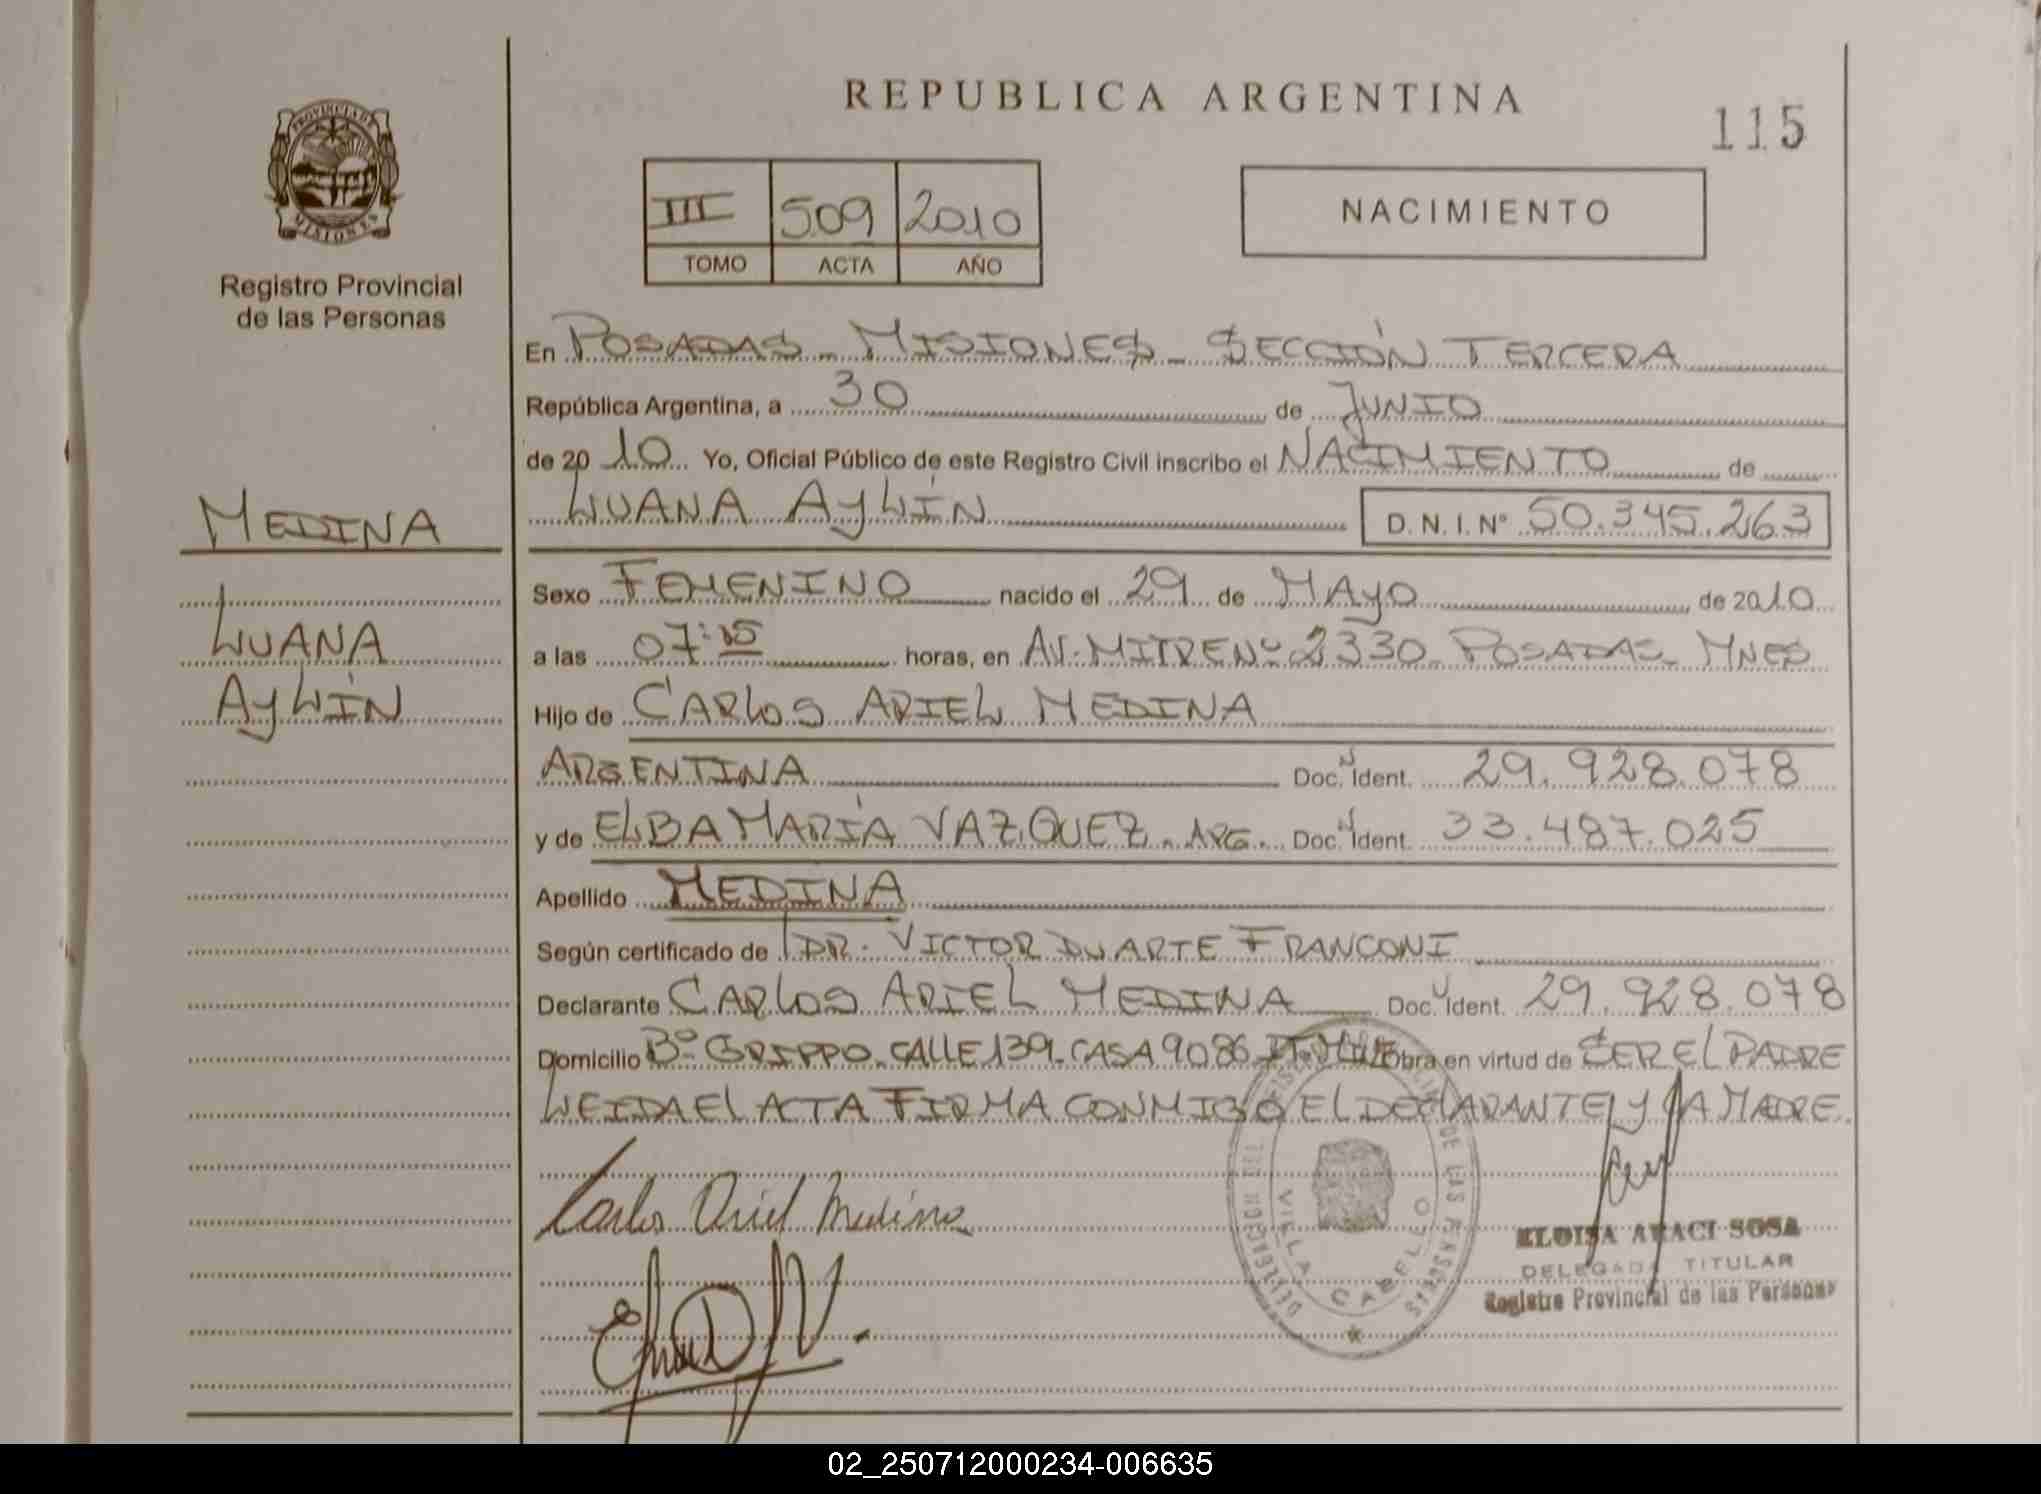 REPUBLICA ARGENTINA
115
PROVINCIA DE MISIONES
Registro Provincial
de las Personas
III 509 2010
TOMO ACTA AÑO
NACIMIENTO
En POSADAS - MISIONES - SECCIÓN TERCERA
República Argentina, a 30 de JUNIO
de 2010 Yo, Oficial Público de este Registro Civil inscribo el NACIMIENTO de
LUANA AYLÍN D.N.I. Nº 50.345.263
MEDINA
LUANA
AYLÍN
Sexo FEMENINO nacido el 29 de MAYO de 2010
a las 07:15 horas, en AV. MITRE Nº 2330 POSADAS MNES
Hijo de CARLOS ARIEL MEDINA
ARGENTINA Doc. Ident. 29.928.078
y de ELBA MARÍA VAZQUEZ - ARG. Doc. Ident. 33.487.025
Apellido MEDINA
Según certificado de DR. VICTOR DUARTE FRANCONI
Declarante CARLOS ARIEL MEDINA Doc. Ident. 29.928.078
Domicilio Bº GRIPPO - CALLE 139 - CASA 9086 Obra en virtud de SER EL PADRE
LEIDA EL ACTA FIRMA CONMIGO EL DECLARANTE Y LA MADRE.
Carlos Ariel Medina
DELEGACION DE LAS PERSONAS
VILLA CABELLO
ELOISA ARACI SOSA
DELEGADA TITULAR
Registro Provincial de las Personas
02_250712000234-006635